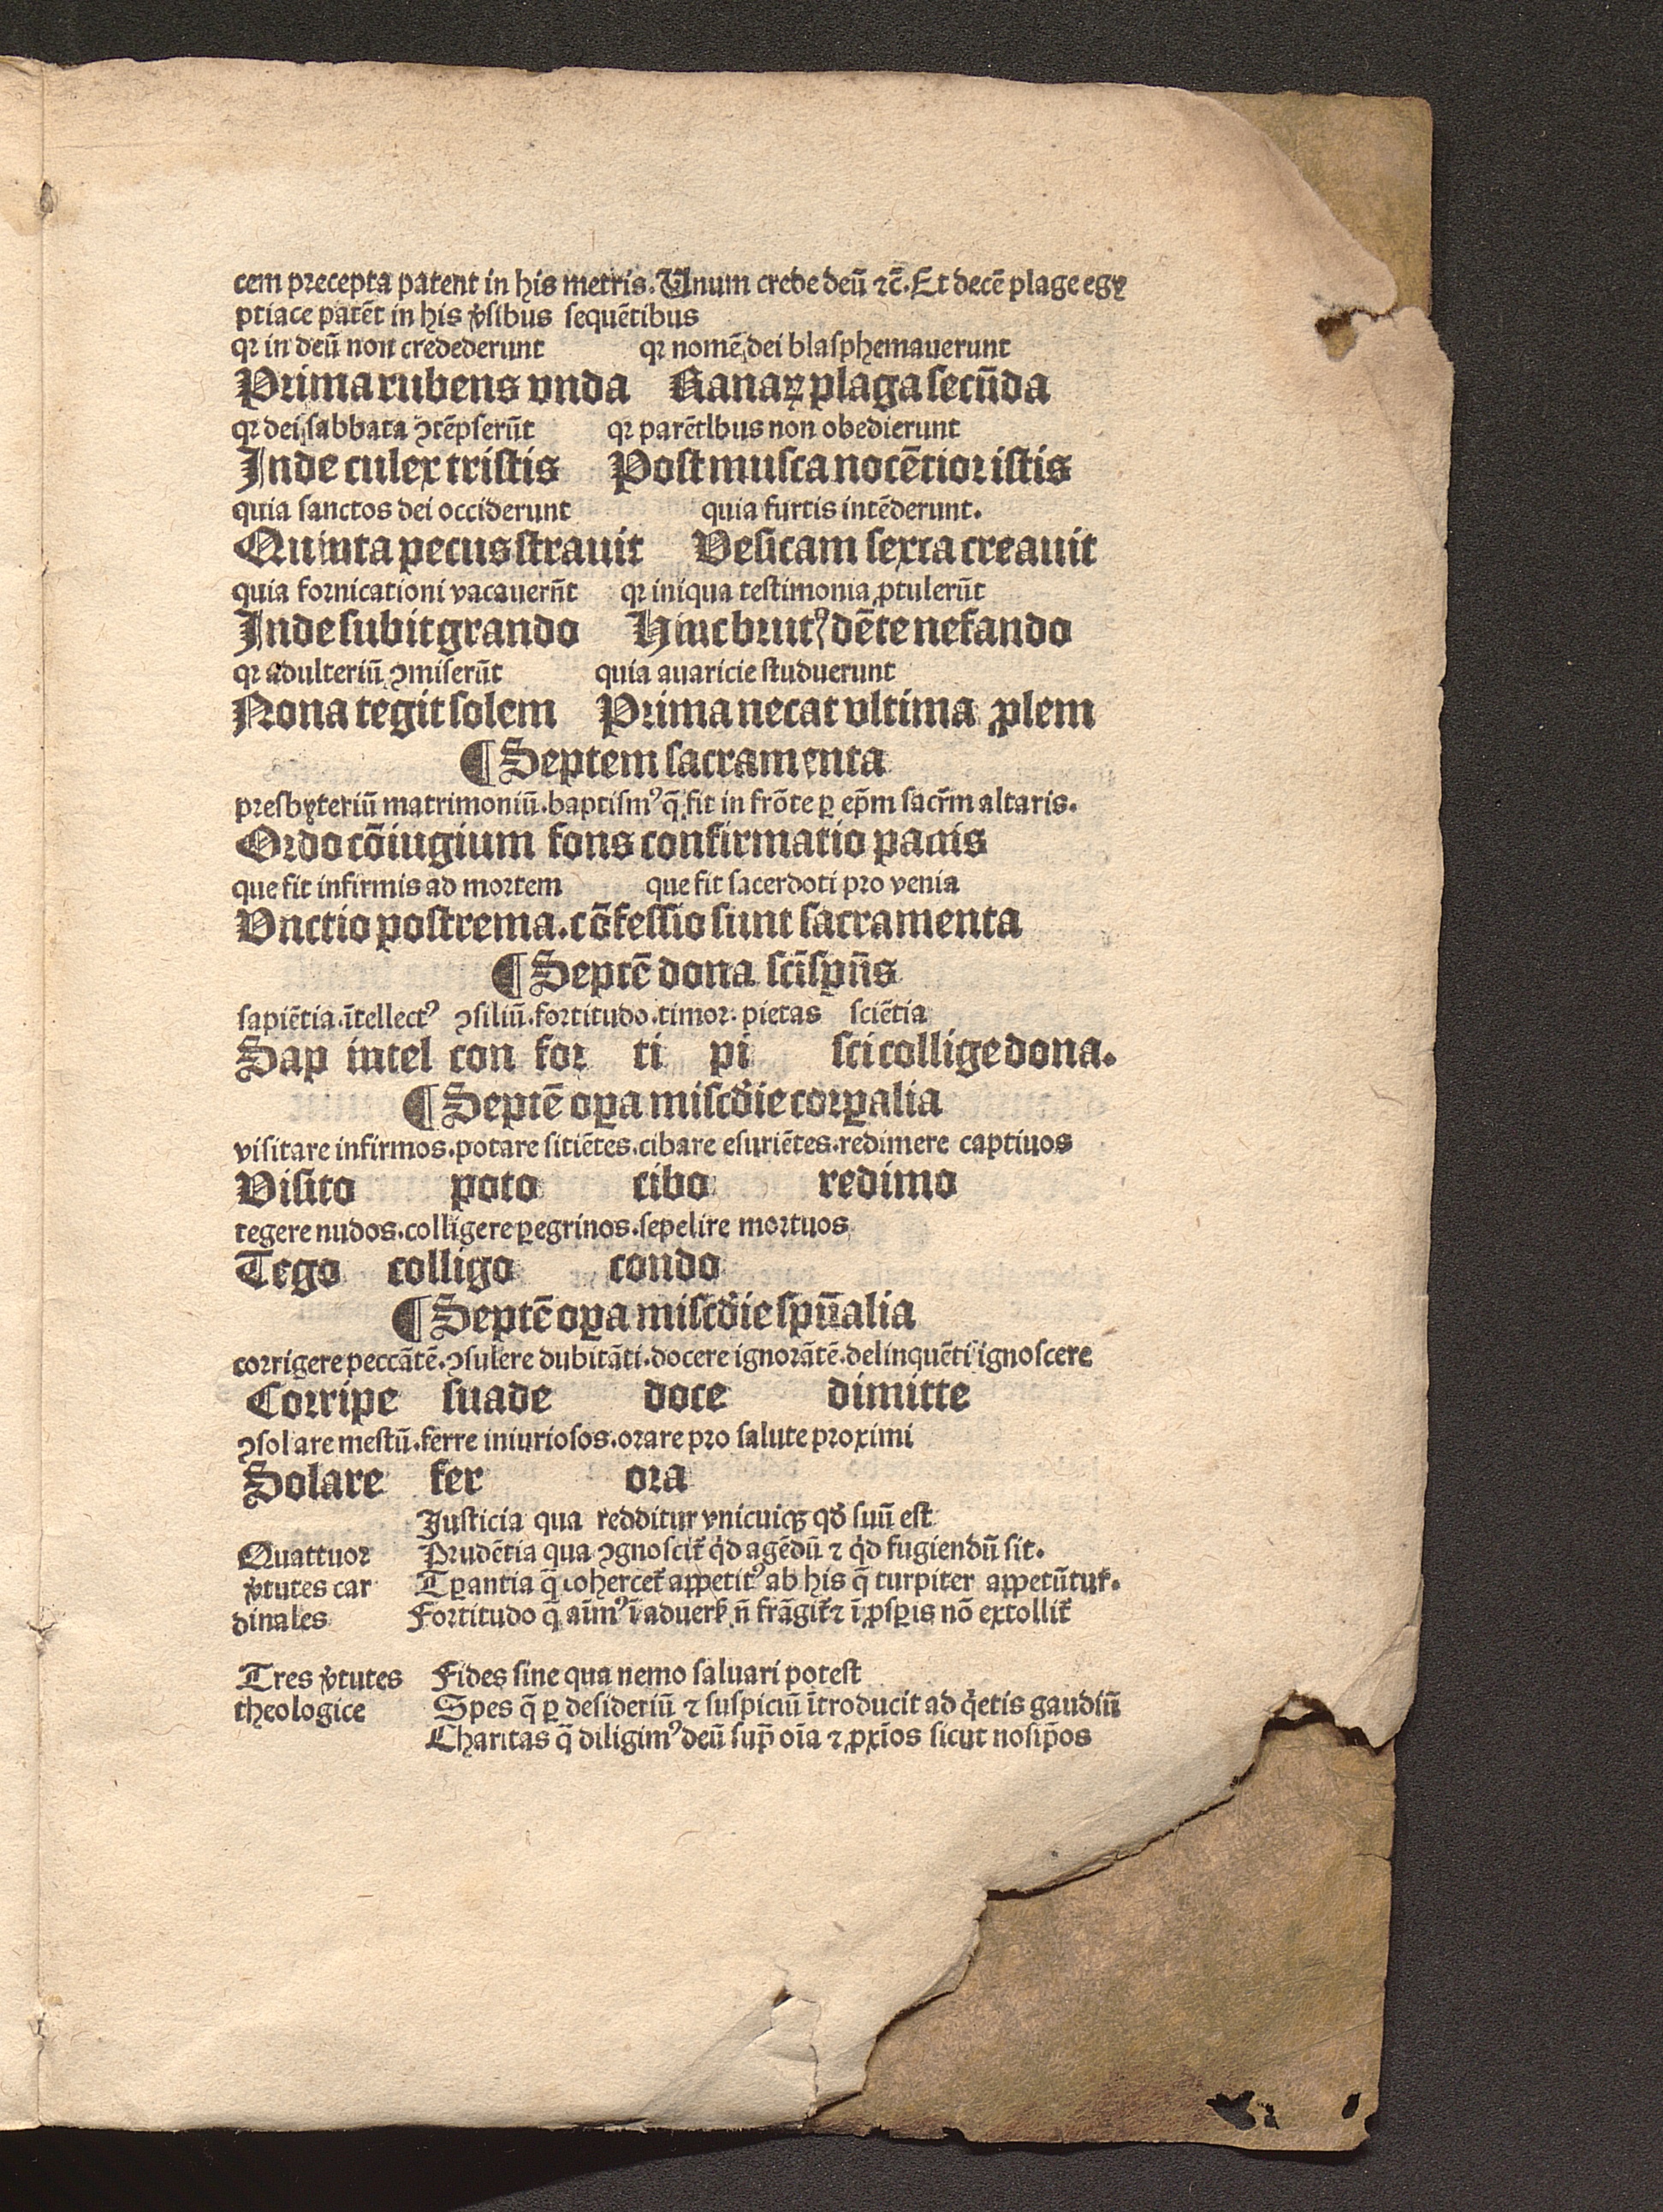 cem precepta patent in his metris. Unum crede deū ⁊c̄. Et decē plage egy
ptiace patēt in his v̾sibus sequētibus
qꝛ in deū non credederunt qꝛ nomē dei blasphemauerunt
Prima rubens vnda Ranaꝝ plaga secūda
qꝛ dei sabbata ꝯtēpserūt qꝛ parētibus non obedierunt
Inde culex tristis Post musca nocētior istis
quia sanctos dei occiderunt quia furtis intēderunt.
Quinta pecus strauit Vesicam sexta creauit
quia fornicationi vacauerūt qꝛ iniqua testimonia ꝓtulerūt
Inde subit grando Hinc brucꝰ dēte nefando
qꝛ adulteriū ꝯmiserūt quia auaricie studuerunt
Nona tegit solem Prima necat vltima ꝓlem
¶ Septem sacramenta
presbyteriū matrimoniū. baptismꝰ q̄ fit in frōte ꝑ ep̄m sacr̄m altaris.
Ordo cōiugium fons confirmatio panis
que fit infirmis ad mortem que fit sacerdoti pro venia
Vnctio postrema. cōfessio sunt sacramenta
¶ Septē dona sc̄i sp̄ūs
sapiētia. ītellectꝰ ꝯsiliū. fortitudo. timor. pietas sciētia
Sap intel con for ti pi sci collige dona.
¶ Septē oꝑa misc̄die corꝑalia
visitare infirmos. potare sitiētes. cibare esuriētes. redimere captiuos
Visito poto cibo redimo
tegere nudos. colligere ꝑegrinos. sepelire mortuos
Tego colligo condo
¶ Septē oꝑa misc̄die sp̄ūalia
corrigere peccātē. ꝯsulere dubitāti. docere ignorātē. delinquēti ignoscere
Corripe suade doce dimitte
ꝯsolare mestū. ferre iniuriosos. orare pro salute proximi
Solare fer ora
Iusticia qua redditur vnicuiqꝫ qd̄ suū est
Quattuor Prudētia qua ꝯgnoscit᷑ qͥd agēdū ⁊ qͥd fugiendū sit.
v̾tutes car Tꝑantia q̄ cohercet᷑ appetitꝰ ab his q̄ turpiter appetūtur᷑.
dinales Fortitudo q̄ aīmꝰ ī aduerẜ n̄ frāgit᷑ ⁊ ī ꝓsꝑis nō extollit᷑
Tres v̾tutes Fides sine qua nemo saluari potest
theologice Spes q̄ ꝑ desideriū ⁊ suspiciū ītroducit ad qͥetis gaudiū
Charitas q̄ diligimꝰ deū sup̄ oīa ⁊ ꝓxīos sicut nosip̄os